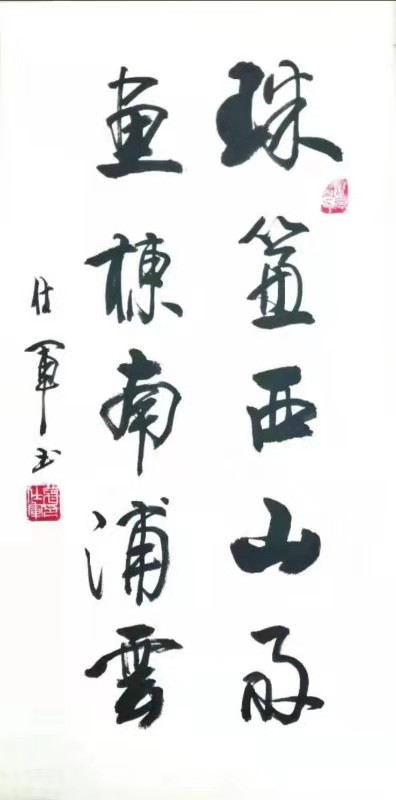 珠簾西山雨
畫棟南浦雲
仕軍書